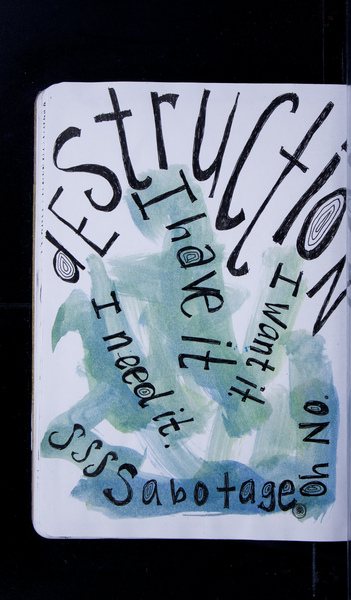 dEStruCtioN
I need it.
I have it
I want it.
SSSSabotage.
Oh No.